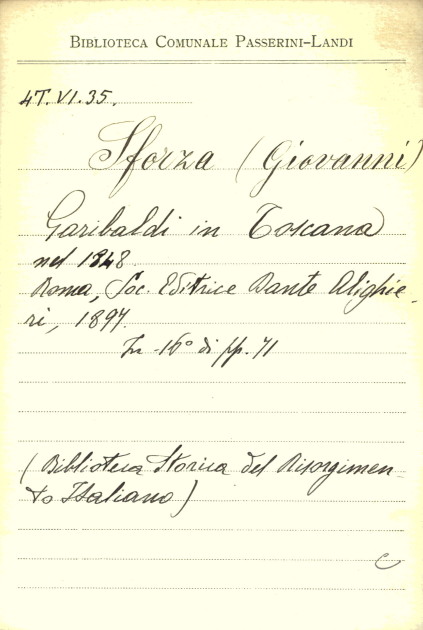 BIBLIOTECA COMUNALE PASSERINI-LANDI
4T.VI.35.
Sforza (Giovanni)
Garibaldi in Toscana
nel 1848.
Roma, Soc. Editrice Dante Alighie-
ri, 1897.
In -16° di pp. 71
(Biblioteca Storica del Risorgimen-
to Italiano)
C